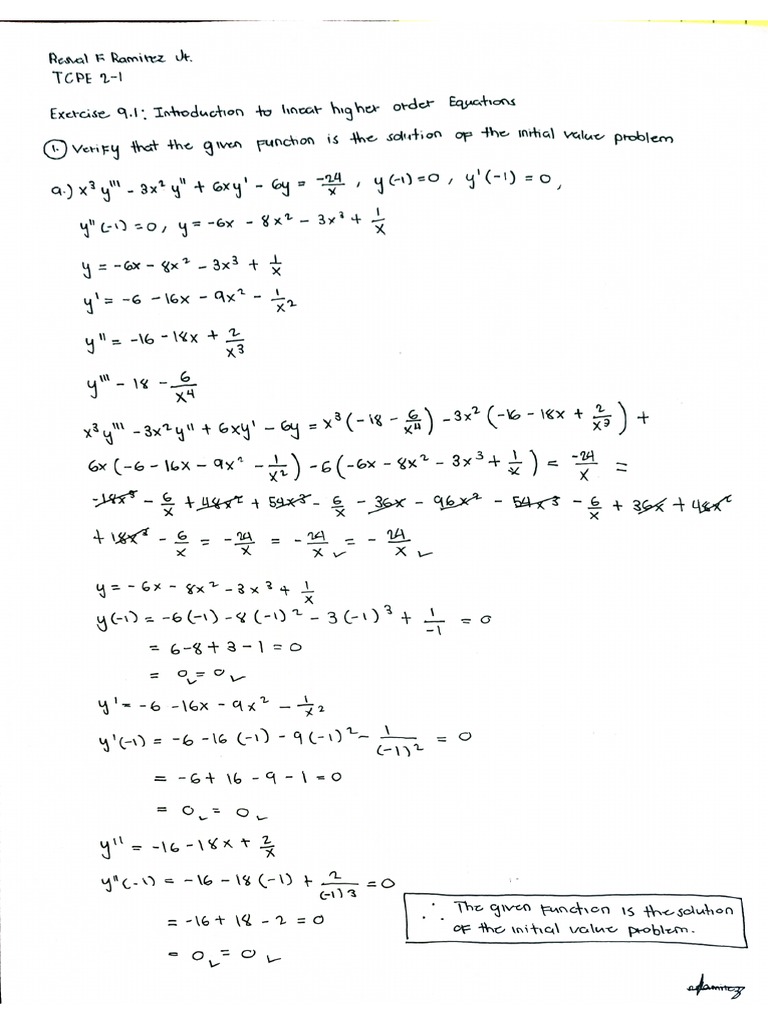 Resval F. Ramirez Jr.
TCPE 2-1
Exercise 9.1: Introduction to linear higher order Equations
1. Verify that the given function is the solution of the initial value problem
a.) x³y''' - 3x²y'' + 6xy' - 6y = -24/x , y(-1)=0, y'(-1) = 0,
y''(-1)=0, y = -6x - 8x² - 3x³ + 1/x
y = -6x - 8x² - 3x³ + 1/x
y' = -6 - 16x - 9x² - 1/x²
y'' = -16 - 18x + 2/x³
y''' - 18 - 6/x⁴
x³y''' - 3x²y'' + 6xy' - 6y = x³(-18 - 6/x⁴) - 3x²(-16 - 18x + 2/x³) +
6x(-6 - 16x - 9x² - 1/x²) - 6(-6x - 8x² - 3x³ + 1/x) = -24/x =
-18x³ - 6/x + 48x² + 54x³ - 6/x - 36x - 96x² - 54x³ - 6/x + 36x + 48x²
+ 18x³ - 6/x = -24/x = -24/x ✓ = -24/x ✓
y = -6x - 8x² - 3x³ + 1/x
y(-1) = -6(-1) - 8(-1)² - 3(-1)³ + 1/-1 = 0
= 6-8+3-1 = 0
= 0 ✓ = 0 ✓
y' = -6 - 16x - 9x² - 1/x²
y'(-1) = -6 - 16(-1) - 9(-1)² - 1/(-1)² = 0
= -6 + 16 - 9 - 1 = 0
= 0 ✓ = 0 ✓
y'' = -16 - 18x + 2/x
y''(-1) = -16 - 18(-1) + 2/(-1)3 = 0
= -16 + 18 - 2 = 0
= 0 ✓ = 0 ✓
∴ The given function is the solution
of the initial value problem.